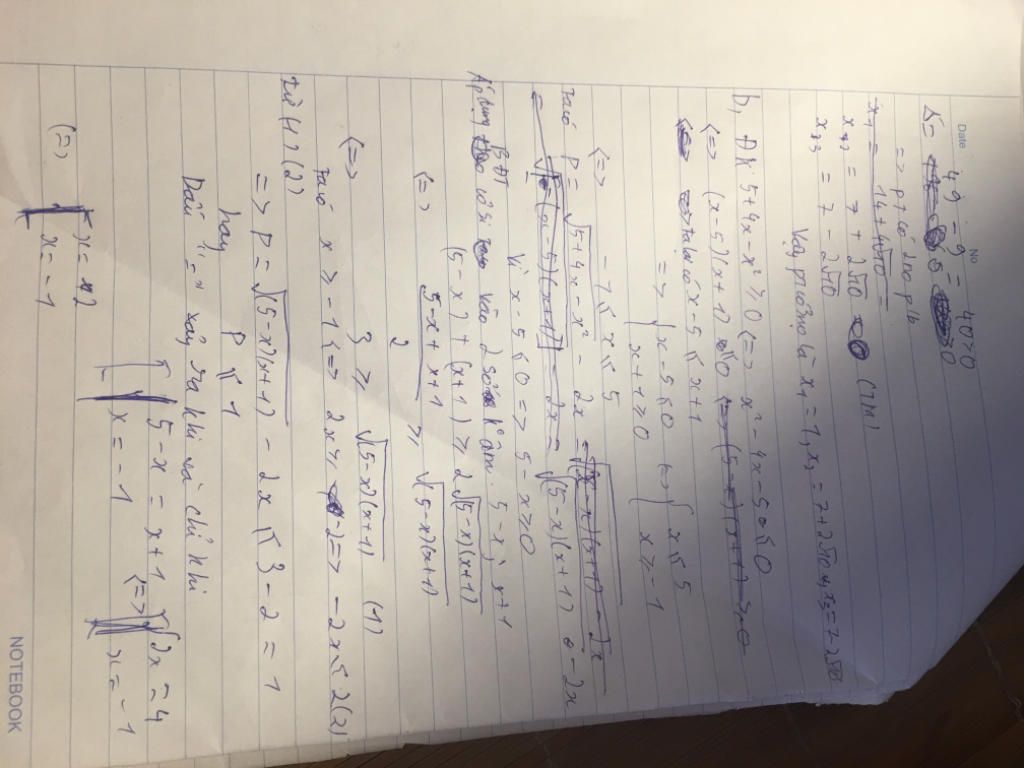 Date No
Δ = 49 - 9 = 40 > 0
=> pt có 2 no p/b
x₂ = 7 + 2√10
x₃ = 7 - 2√10 (TM)
Vậy ptrình có no là x₁ = 1, x₂ = 7+2√10, x₃ = 7-2√10
b, ĐK 5 + 4x - x² ≥ 0 (=> x² - 4x - 5 ≤ 0
(=> (x-5)(x+1) ≤ 0
ta lại có x - 5 ≤ x + 1
=> { x - 5 ≤ 0 (=> { x ≤ 5
x + 1 ≥ 0 x ≥ -1
(=> -1 ≤ x ≤ 5
Ta có P = √5+4x-x² - 2x
= √(5-x)(x+1) - 2x
Vì x - 5 ≤ 0 => 5 - x ≥ 0
Áp dụng BĐT cô si vào 2 số k° âm 5-x ; x+1
(5-x) + (x+1) ≥ 2√(5-x)(x+1)
(=> 5-x+x+1 / 2 ≥ √(5-x)(x+1)
(=> 3 ≥ √(5-x)(x+1) (1)
Ta có x ≥ -1 (=> 2x ≥ -2 => -2x ≤ 2 (2)
Từ (1), (2)
=> P = √(5-x)(x+1) - 2x ≤ 3 - 2 = 1
hay P ≤ 1
Dấu "=" xảy ra khi và chỉ khi
[ 5 - x = x + 1 (=> [ 2x = 4
x = -1 x = -1
(=> [ x = 2
x = -1
NOTEBOOK